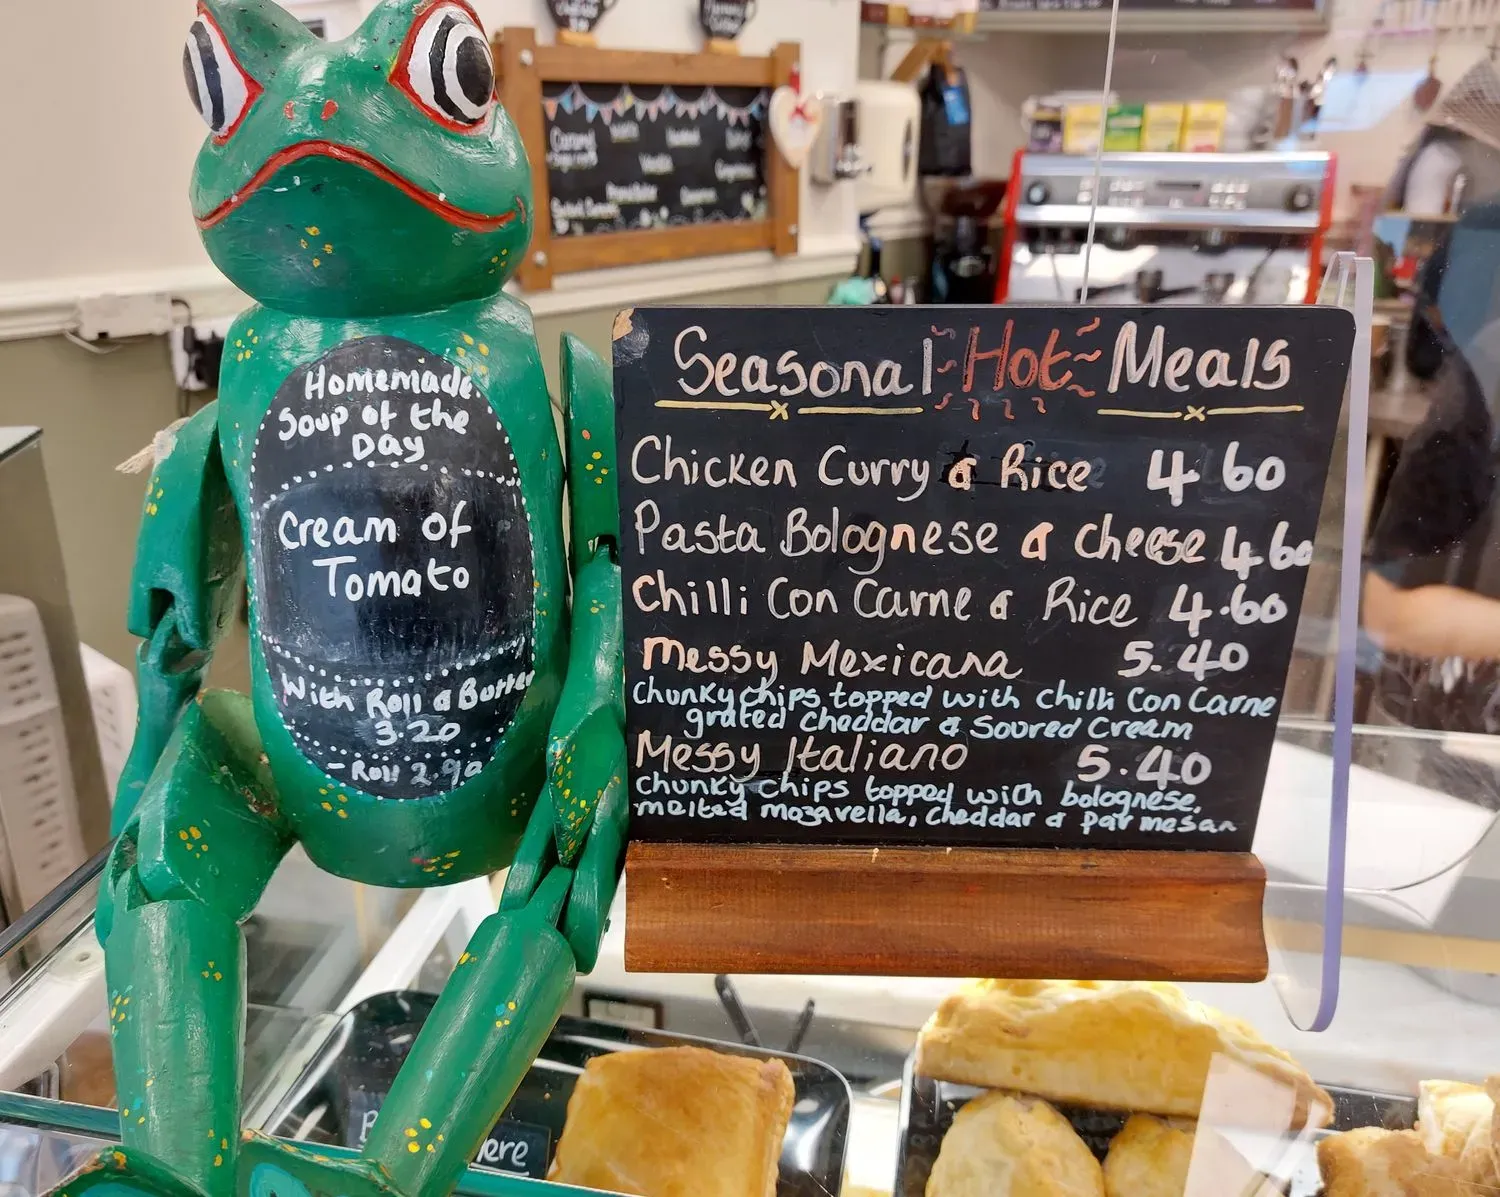 Homemade
Soup of the
Day
Cream of
Tomato
With Roll & Butter
3.20
- Roll 2.90
Seasonal Hot Meals
Chicken Curry & Rice 4 60
Pasta Bolognese & cheese 4 60
Chilli Con Carne & Rice 4.60
Messy Mexicana 5.40
Chunky chips topped with Chilli Con Carne
grated cheddar & Soured Cream
Messy Italiano 5.40
Chunky chips topped with bolognese,
melted mozarella, cheddar & parmesan